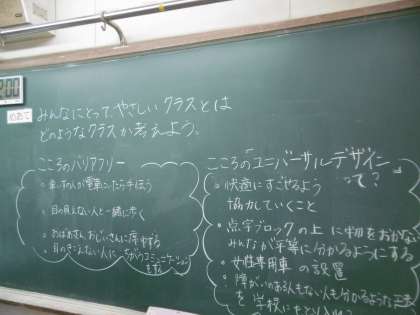 2:00
めあて
みんなにとって、やさしいクラスとは
どのようなクラスか考えよう。
こころのバリアフリー
目の見えない人と一緒に歩く
おばあさん、おじいさんに席をゆずる
目のきこえない人に
コミュニケーション
をする
こころの「ユニバーサルデザイン」
って?
快適にすごせるよう
協力していくこと
点字ブロックの上に物をおかない
みんなが平等に分かるようにする
女性専用車の設置
障がいのある人もない人も分かるような
を学校に